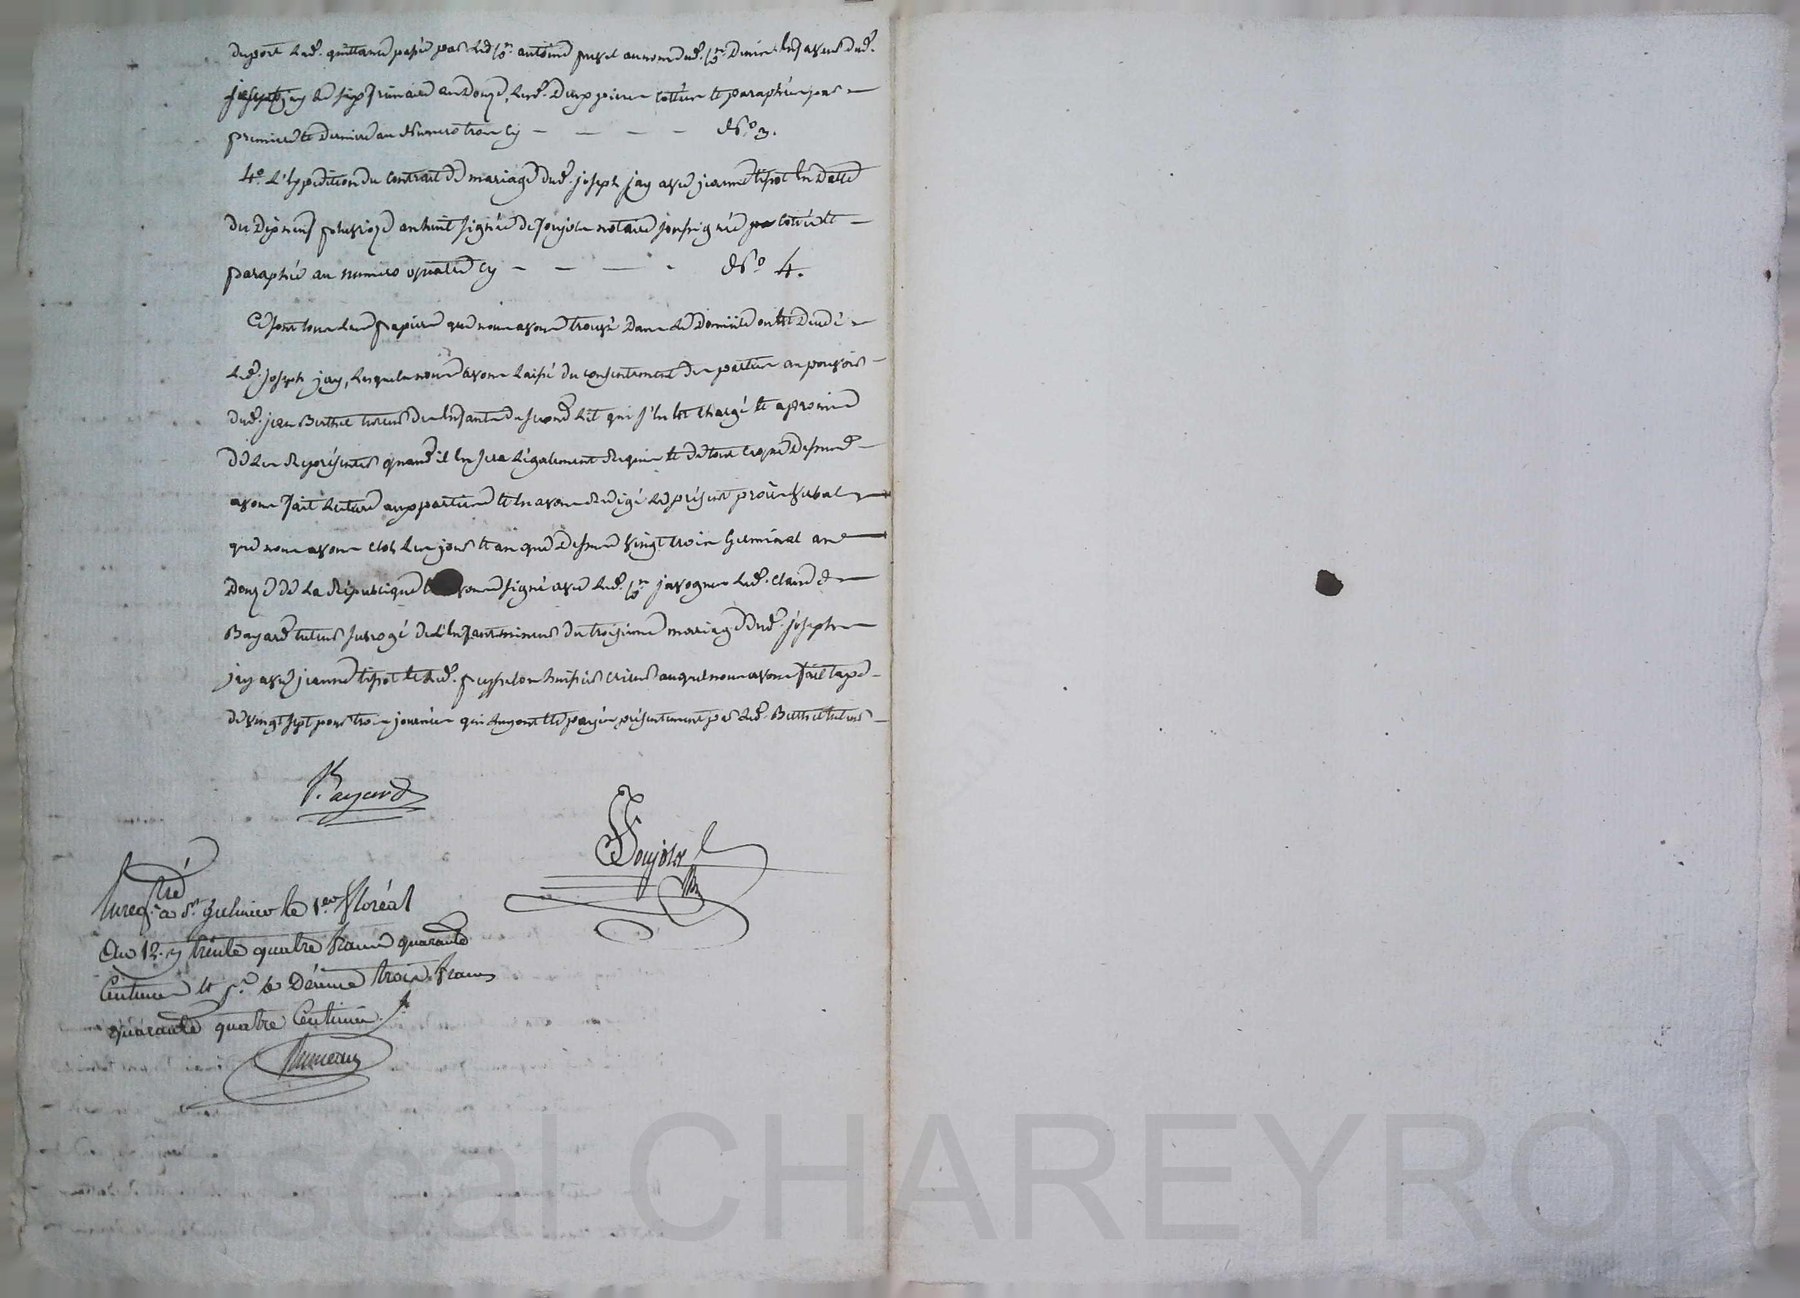 duport lad. quittance passée par led. Cn. antoine au nom dud. Cn. Denis en faveur dud.
joseph jay le six frimaire an douze, lesd. deux pieces cottées et paraphées par
premiere et derniere au Numero trois Cy — — — — — No. 3.
4o. L'Expedition du Contrait de mariage dud. joseph jay avec jeanne tissot En datte
du Dix neuf pluviose an huit signée de Soujolz notaire soussigné cottée et —
paraphée au numero quatre Cy — — — - No 4.
Ce sont tous les papiers que nous avons trouvé Dans le Domicile où Est Decedé
led. joseph jay, lesquels nous avons laissé du consentement des parties au pouvoir —
dud. jean Berthet tuteur des Enfants du second Lit qui s'En Est Chargé et a promis
de les Représenter quand il En sera légalement Requis et de tout ce que dessus —
avons fait lecture aux parties et En avons Redigé le présent procès verbal
que nous avons clos les jour et an que dessus vingt trois Germinal an
Douze de la République et avons signé avec led. Cn javogues led. Claude
Bayard tuteur subrogé de l'Enfant mineur du troisieme mariage dud. joseph
jay avec jeanne tissot et led. huissier crieur auquel nous avons fait taxe —
de vingt sept pour trois journées qui luy ont Eté payées présentement par led. Berthet tuteur —
Bayard
Soujolz
Enregtré a St. Galmier le 1er floréal
An 12. trente quatre francs quarante
Centimes et pr. le Décime trois francs
quarante quatre Centimes.
Pascal CHAREYRON